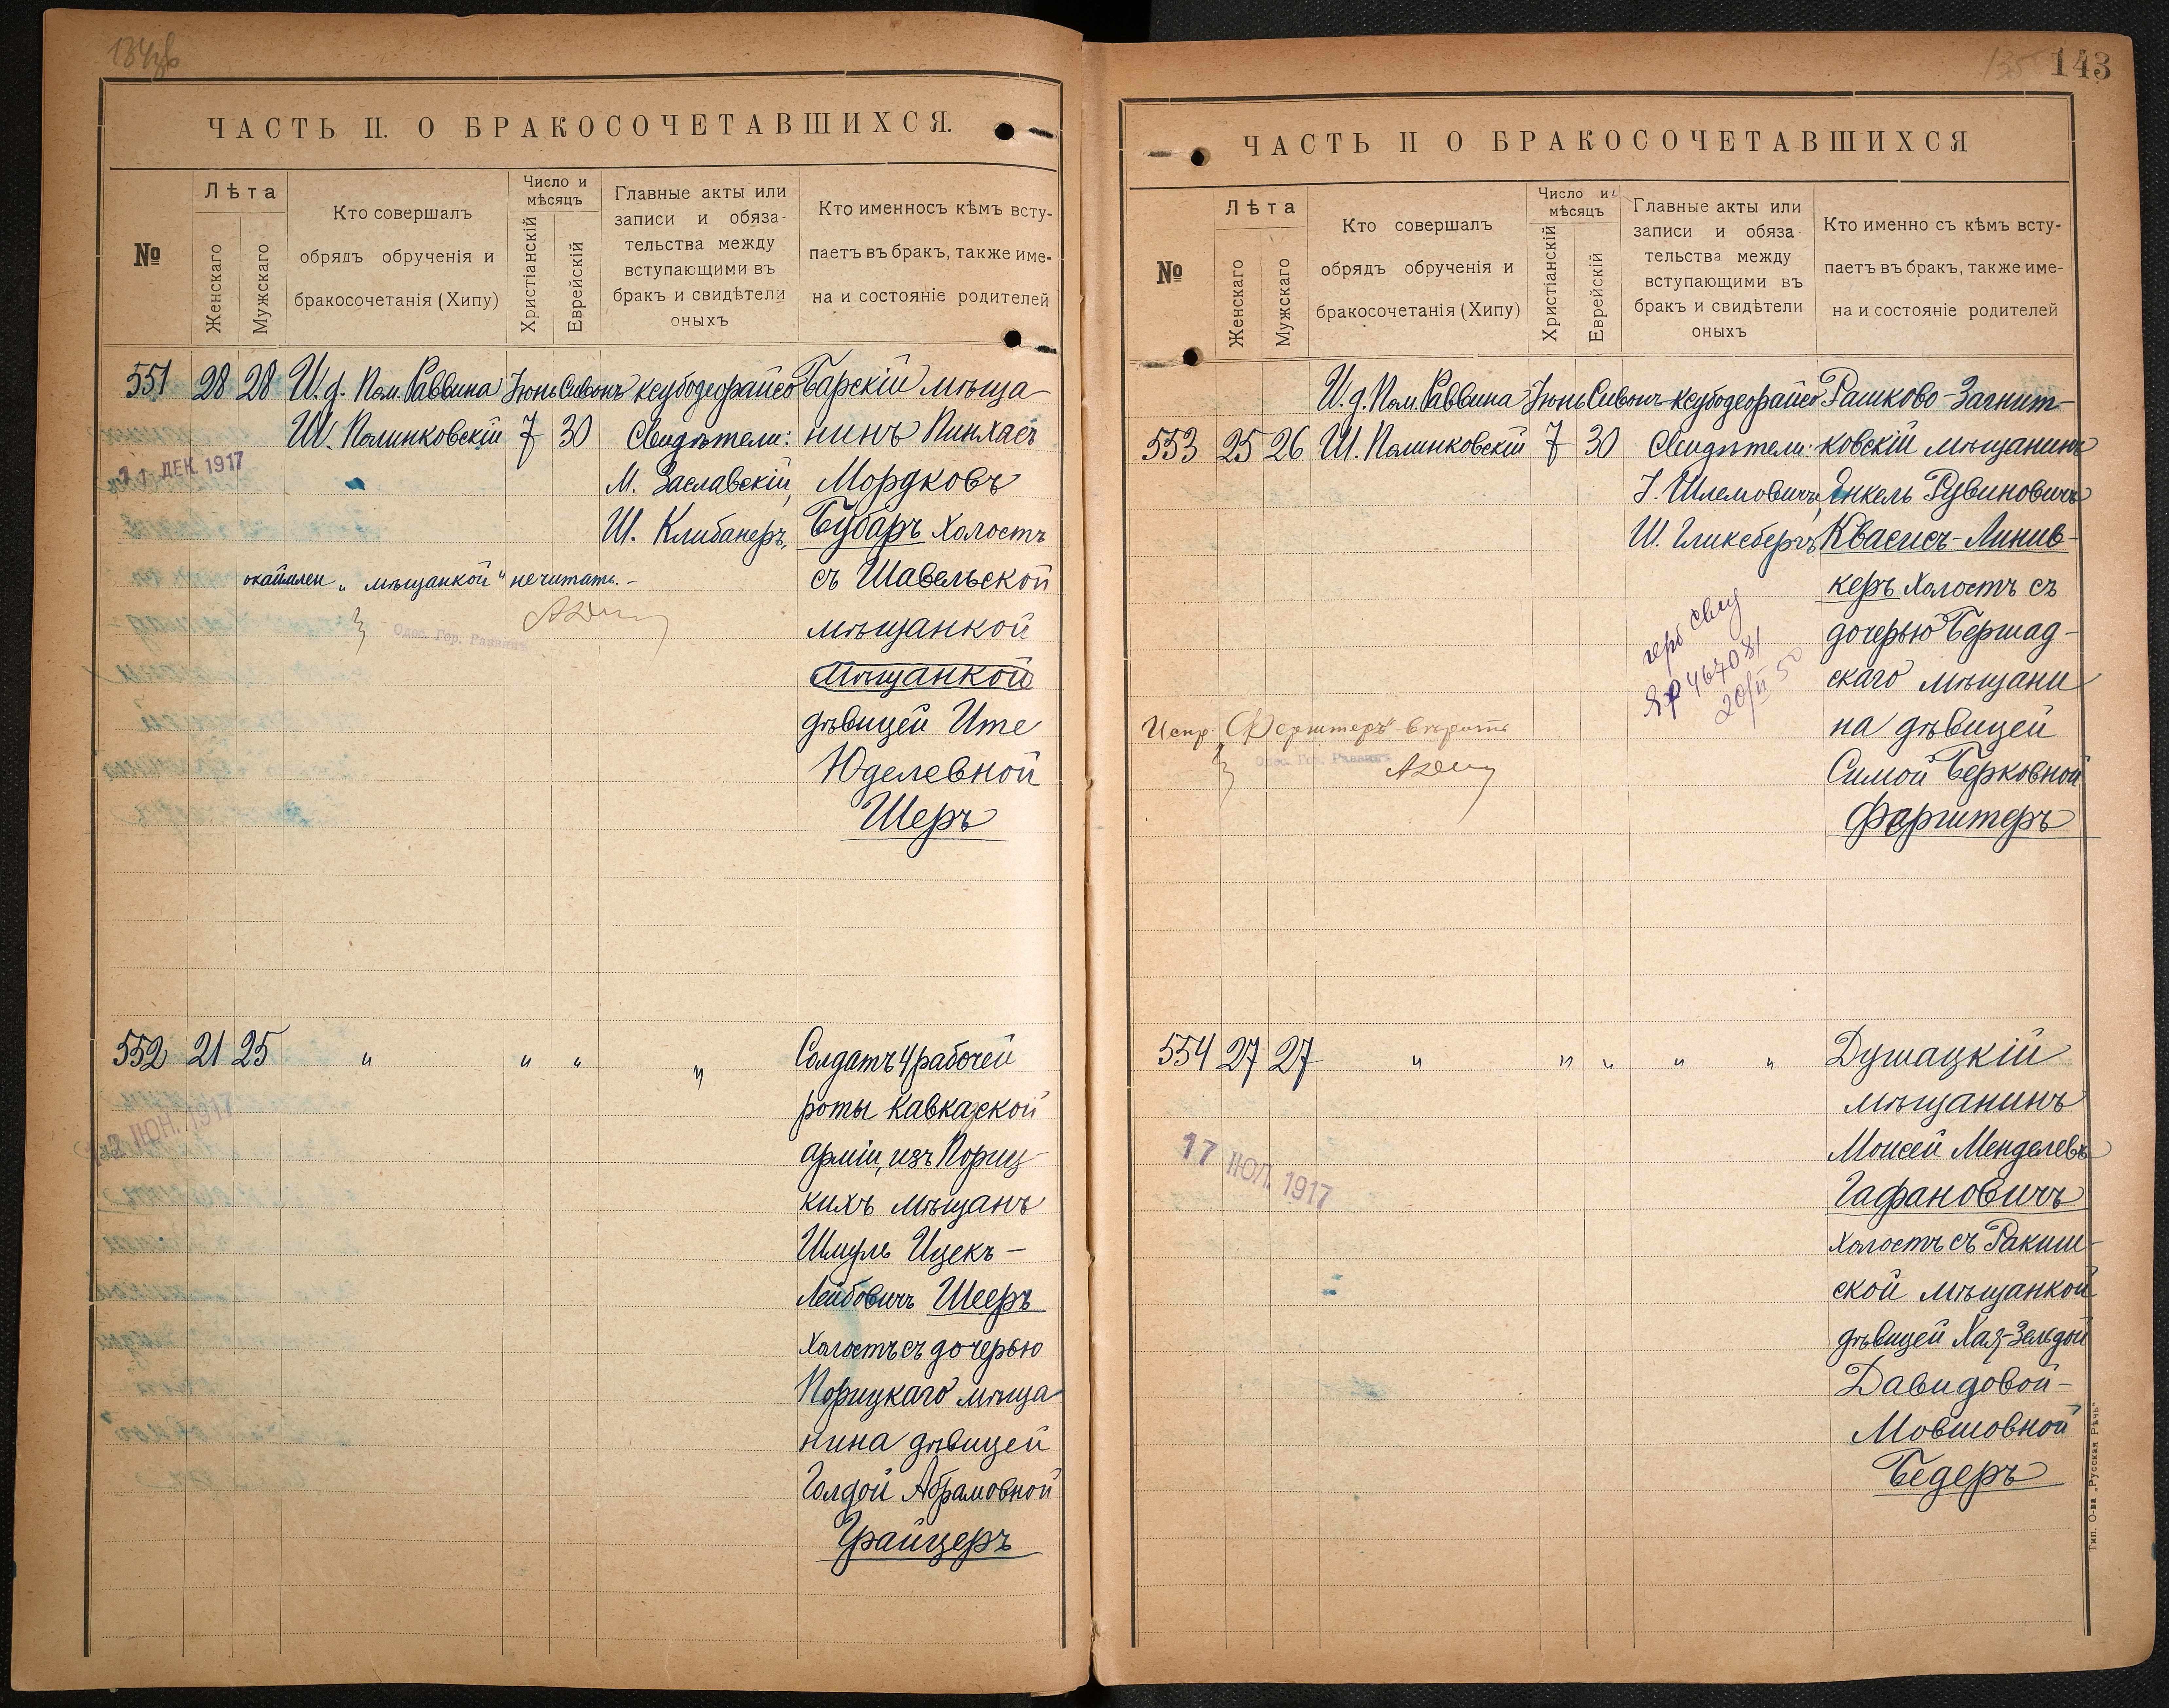 ЧАСТЬ II. О БРАКОСОЧЕТАВШИХСЯ.
№
Лѣта
Женскаго
Мужскаго
Кто совершалъ
обрядъ обрученія и
бракосочетанія (Хипу)
Число и
мѣсяцъ
Христіанскій
Еврейскій
Главные акты или
записи и обяза-
тельства между
вступающими въ
бракъ и свидѣтели
оныхъ
Кто именносъ кѣмъ всту-
паетъ въ бракъ, также име-
на и состояніе родителей
551 28 28 И.д. Пом. Раввина
Ш. Полинковскій
Іюнь
7
Сивонъ
30
ксубодеорайсо
Свидѣтели:
М. Заславскій,
Ш. Клибанеръ,
Барскій мѣща-
нинъ Пинхасъ
Мордковъ
Бубаръ холостъ
съ Шавельской
мѣщанкой
мѣщанкой
дѣвицей Ите
Юделевной
Шеръ
11 ДЕК. 1917
„мѣщанкой“ не читать.-
Одес. Гор. Раввинъ
552 21 25 " " " "
Солдатъ 4 рабочей
роты Кавказской
арміи, изъ Пориц-
кихъ мѣщанъ
Шмуль Ицекъ-
Лейбовичъ Шееръ
холостъ съ дочерью
Порицкаго мѣща
нина дѣвицей
Голдой Абрамовной
Грайцеръ
ІЮН. 1917
143
135
ЧАСТЬ II О БРАКОСОЧЕТАВШИХСЯ
№
Лѣта
Женскаго
Мужскаго
Кто совершалъ
обрядъ обрученія и
бракосочетанія (Хипу)
Число и
мѣсяцъ
Христіанскій
Еврейскій
Главные акты или
записи и обяза
тельства между
вступающими въ
бракъ и свидѣтели
оныхъ
Кто именно съ кѣмъ всту-
паетъ въ бракъ, также име-
на и состояніе родителей
553 25 26 И.д. Пом. Раввина
Ш. Полинковскій
Іюнь
7
Сивонъ
30
ксубодеорайсо
Свидѣтели:
І. Шлемовичъ,
Ш. Гликсбергъ
Рашково-Загнит-
ковскій мѣщанинъ
Янкель Рувиновичъ
Квасисъ-Линив-
керъ холостъ съ
дочерью Бершад-
скаго мѣщани
на дѣвицей
Симой Берковной
Фарштеръ
20/II 50
Испр. „Ферштеръ“ вѣрить
Одес. Гор. Раввинъ
554 27 27 " " " " "
Душацкій
мѣщанинъ
Моисей Менделевъ
Гафановичъ
холостъ съ Ракиш-
ской мѣщанкой
дѣвицей Хая-Зельдой
Давидовой-
Мовшовной
Бедеръ
17 ІЮЛ. 1917
Тип. О-ва „Русская Рѣчь“